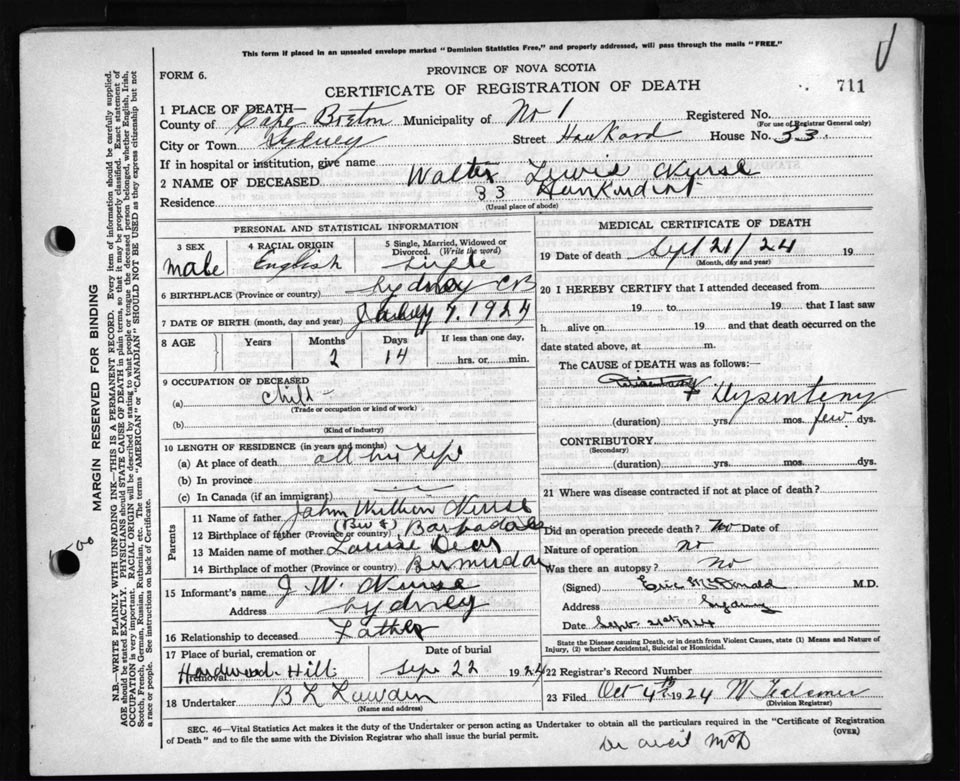 This form if placed in an unsealed envelope marked "Dominion Statistics Free," and properly addressed, will pass through the mails "FREE."
FORM 6.
PROVINCE OF NOVA SCOTIA
CERTIFICATE OF REGISTRATION OF DEATH
711
1 PLACE OF DEATH—
County of Cape Breton Municipality of No 1 Registered No.
(For use of Registrar General only)
City or Town Sydney Street Hankard House No. 33
If in hospital or institution, give name
2 NAME OF DECEASED Walter Lewis Nurse
Residence 33 Hankard St
(Usual place of abode)
PERSONAL AND STATISTICAL INFORMATION
3 SEX 4 RACIAL ORIGIN 5 Single, Married, Widowed or Divorced. (Write the word)
Male English Single
6 BIRTHPLACE (Province or country) Sydney CB
7 DATE OF BIRTH (month, day and year) 7, 1924
8 AGE Years Months Days If less than one day,
2 14 hrs. or min.
9 OCCUPATION OF DECEASED
(a) child
(Trade or occupation or kind of work)
(b)
(Kind of industry)
10 LENGTH OF RESIDENCE (in years and months)
(a) At place of death all his life
(b) In province
(c) In Canada (if an immigrant)
Parents
11 Name of father John William Nurse
12 Birthplace of father (Province or country) (BWI) Barbados
13 Maiden name of mother Louise Dear
14 Birthplace of mother (Province or country) Bermuda
15 Informant's name J. W. Nurse
Address Sydney
16 Relationship to deceased Father
17 Place of burial, cremation or removal Date of burial
Hardwood Hill Sept 22 1924
18 Undertaker B L
(Name and address)
MEDICAL CERTIFICATE OF DEATH
19 Date of death Sept 21/24 19
(Month, day and year)
20 I HEREBY CERTIFY that I attended deceased from
19 to 19 that I last saw
h alive on 19 and that death occurred on the
date stated above, at m.
The CAUSE of DEATH was as follows:—
Dysentery
(duration) yrs. mos. few dys.
CONTRIBUTORY
(Secondary)
(duration) yrs. mos. dys.
21 Where was disease contracted if not at place of death?
Did an operation precede death? No Date of
Nature of operation no
Was there an autopsy? No
(Signed) Eric McDonald M.D.
Address Sydney
Date Sept. 21st 1924
State the Disease causing Death, or in death from Violent Causes, state (1) Means and Nature of Injury, (2) whether Accidental, Suicidal or Homicidal.
22 Registrar's Record Number
23 Filed Oct 4th 1924 W
(Division Registrar)
SEC. 46—Vital Statistics Act makes it the duty of the Undertaker or person acting as Undertaker to obtain all the particulars required in the "Certificate of Registration
of Death" and to file the same with the Division Registrar who shall issue the burial permit.
(OVER)
MARGIN RESERVED FOR BINDING
N.B.—WRITE PLAINLY WITH UNFADING INK—THIS IS A PERMANENT RECORD. Every item of information should be carefully supplied.
AGE should be stated EXACTLY. PHYSICIANS should STATE CAUSE OF DEATH in plain terms, so that it may be properly classified. Exact statement of
OCCUPATION is very important. RACIAL ORIGIN will be described by stating to what people or tongue the deceased person belonged, whether English, Irish,
Scotch, French, German, Russian, Ruthenian, etc. The terms "AMERICAN" or "CANADIAN" SHOULD NOT BE USED as they express citizenship but not
a race or people. See instructions on back of Certificate.